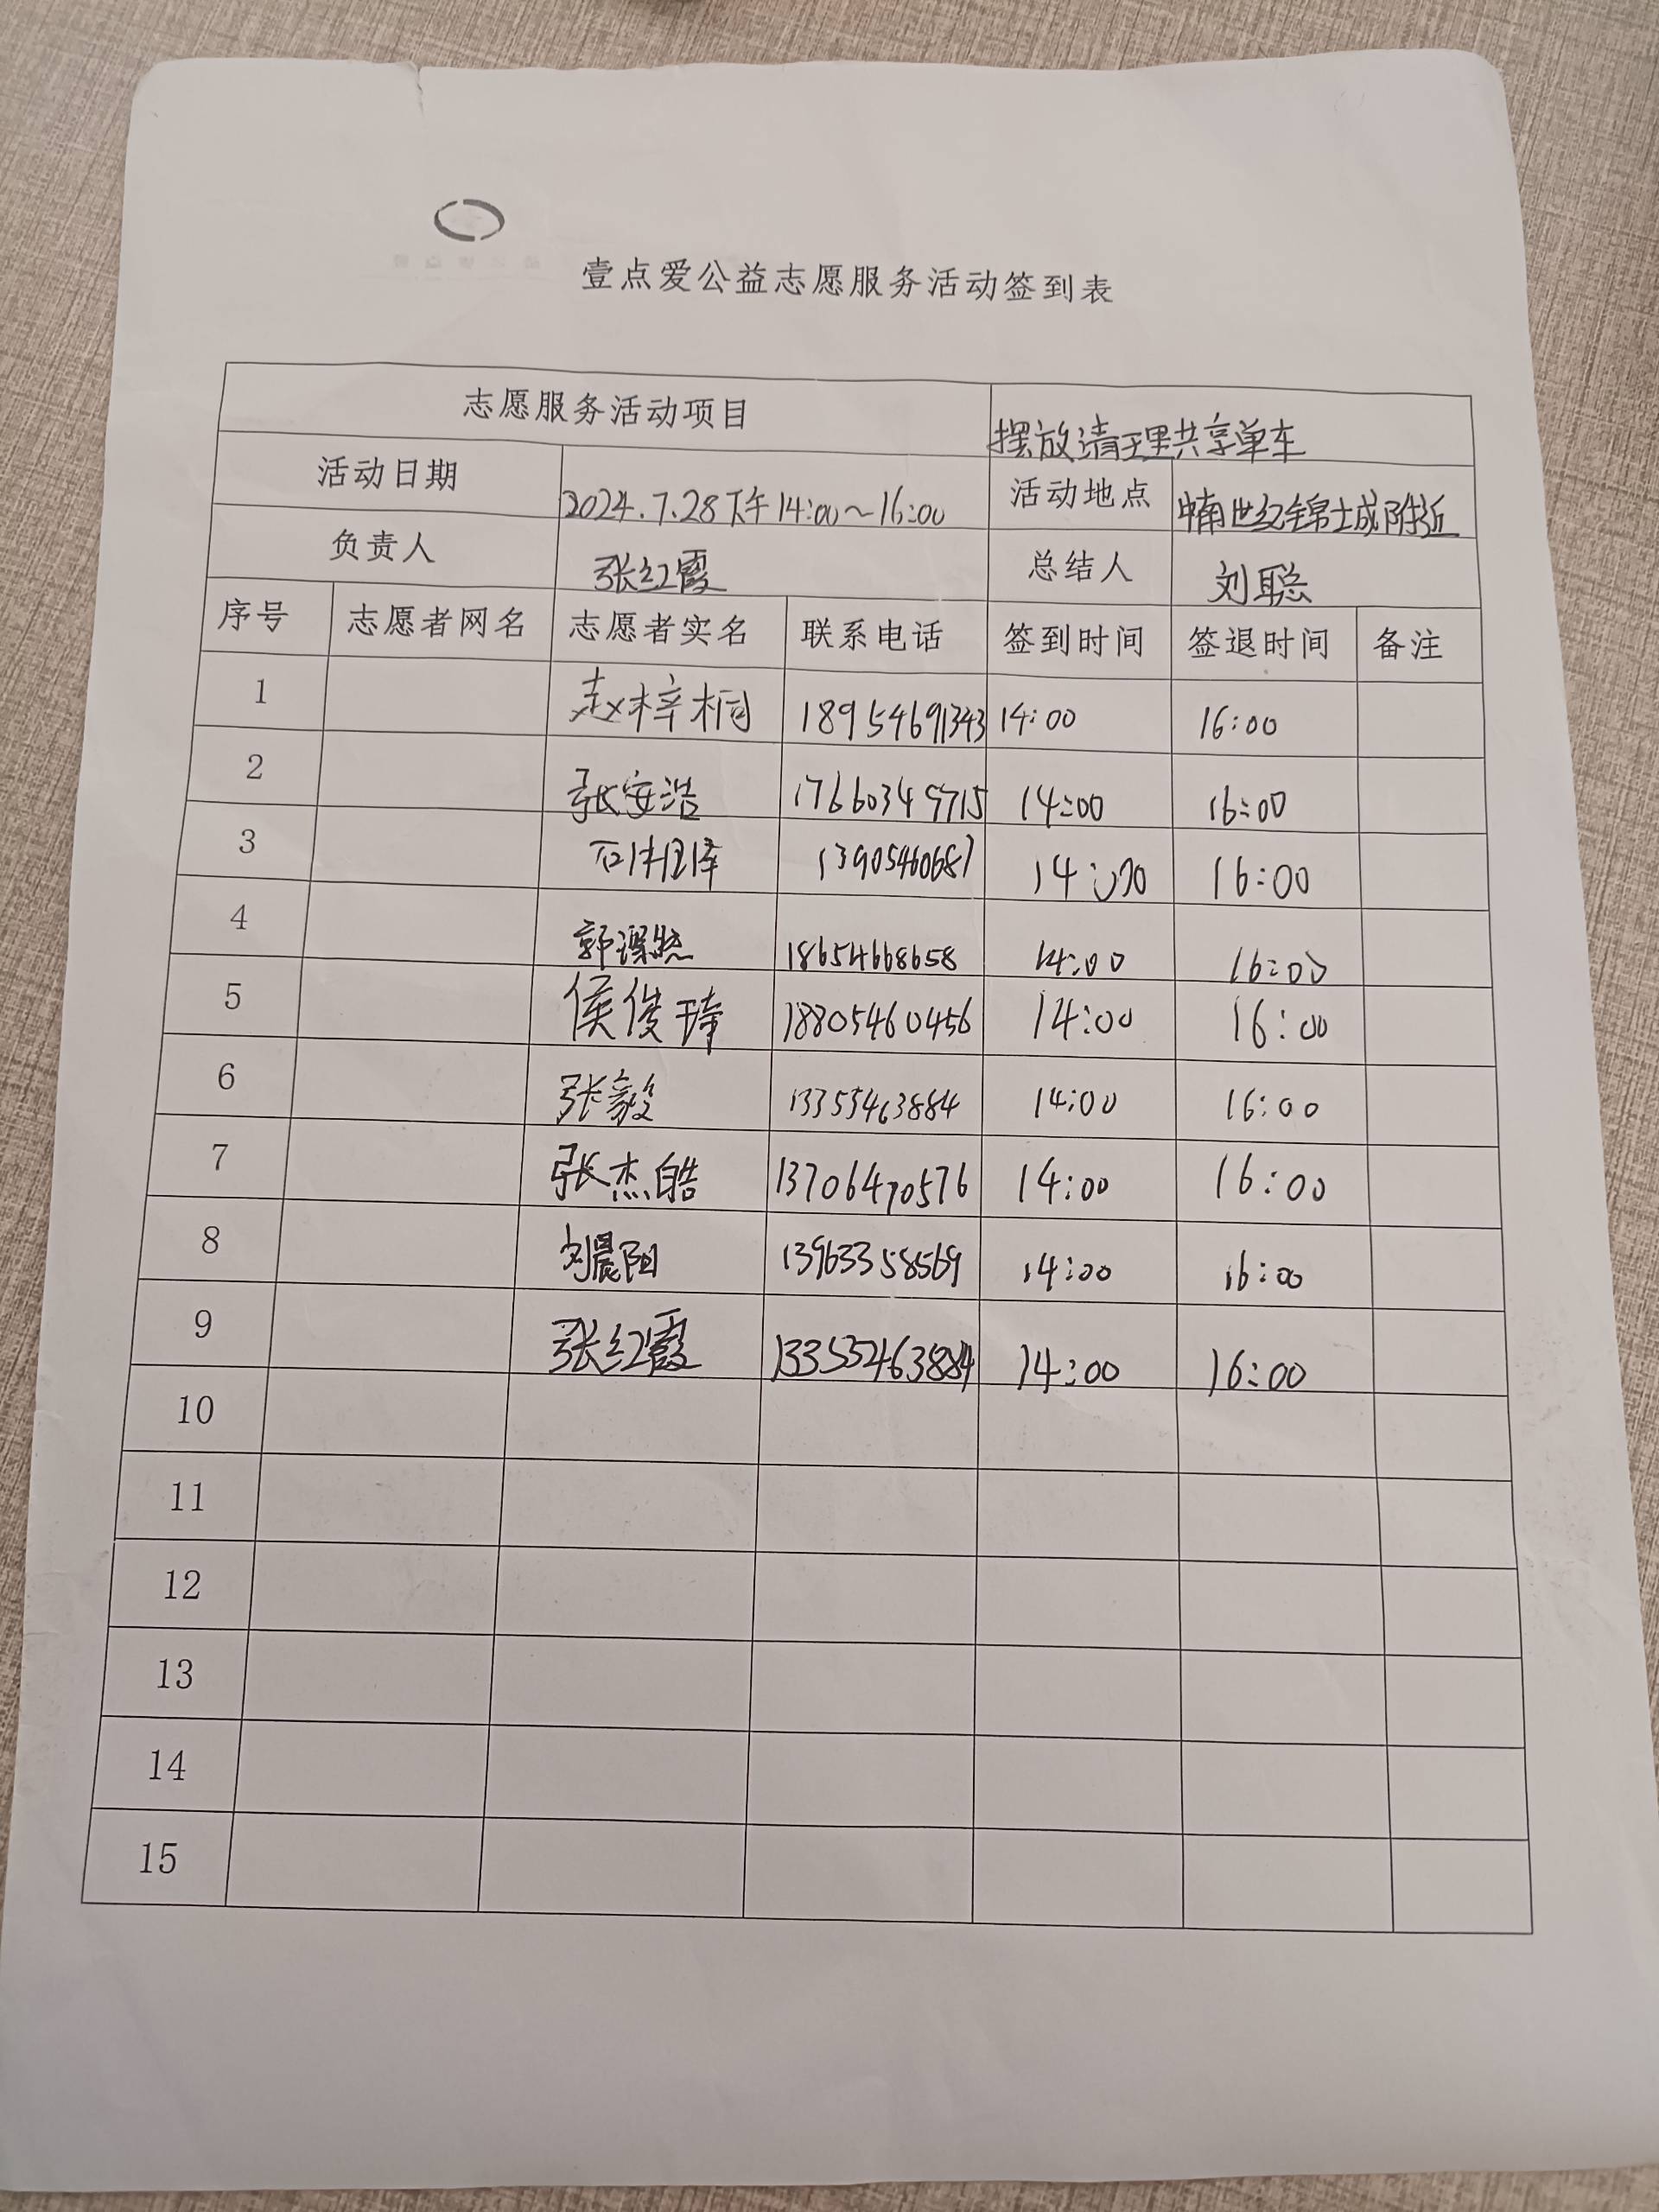 壹点爱公益志愿服务活动签到表
志愿服务活动项目 摆放清理共享单车
活动日期 2024.7.28下午14:00~16:00 活动地点 中南世纪锦城附近
负责人 张红霞 总结人 刘聪
序号 志愿者网名 志愿者实名 联系电话 签到时间 签退时间 备注
1 赵梓桐 18954691343 14:00 16:00
2 张安浩 17660349715 14:00 16:00
3 13905460687 14:00 16:00
4 郭 18654668658 14:00 16:00
5 侯俊琦 18805460456 14:00 16:00
6 张毅 13355463884 14:00 16:00
7 张杰皓 13706470576 14:00 16:00
8 刘晨阳 13963358569 14:00 16:00
9 张红霞 13355463884 14:00 16:00
10
11
12
13
14
15